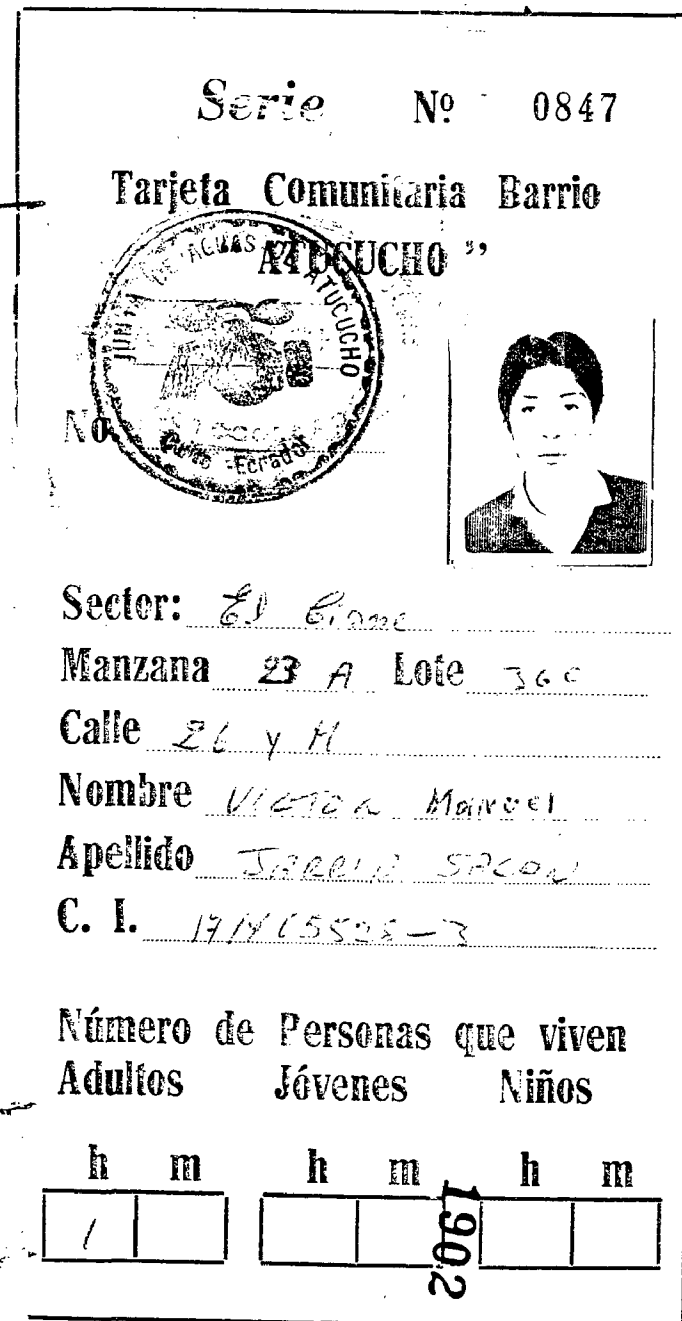 Serie Nº 0847
Tarjeta Comunitaria Barrio
ATUCUCHO ”
JUNTA DE AGUAS ATUCUCHO
Quito - Ecuador
No.
Sector: El
Manzana 23 A Lote 36
Calle 26 y H
Nombre Victor Manuel
Apellido
C. I.
Número de Personas que viven
Adultos Jóvenes Niños
h m h m h m
1
1902